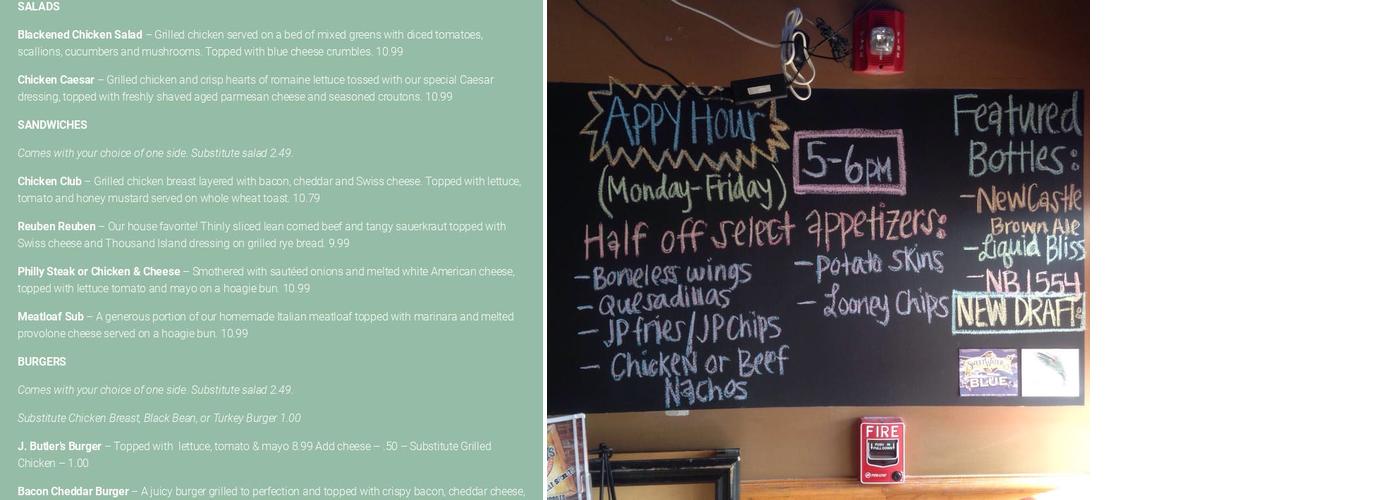 SALADS
Blackened Chicken Salad – Grilled chicken served on a bed of mixed greens with diced tomatoes,
scallions, cucumbers and mushrooms. Topped with blue cheese crumbles. 10.99
Chicken Caesar – Grilled chicken and crisp hearts of romaine lettuce tossed with our special Caesar
dressing, topped with freshly shaved aged parmesan cheese and seasoned croutons. 10.99
SANDWICHES
Comes with your choice of one side. Substitute salad 2.49.
Chicken Club – Grilled chicken breast layered with bacon, cheddar and Swiss cheese. Topped with lettuce,
tomato and honey mustard served on whole wheat toast. 10.79
Reuben Reuben – Our house favorite! Thinly sliced lean corned beef and tangy sauerkraut topped with
Swiss cheese and Thousand Island dressing on grilled rye bread. 9.99
Philly Steak or Chicken & Cheese – Smothered with sautéed onions and melted white American cheese,
topped with lettuce tomato and mayo on a hoagie bun. 10.99
Meatloaf Sub – A generous portion of our homemade Italian meatloaf topped with marinara and melted
provolone cheese served on a hoagie bun. 10.99
BURGERS
Comes with your choice of one side. Substitute salad 2.49.
Substitute Chicken Breast, Black Bean, or Turkey Burger 1.00
J. Butler's Burger – Topped with lettuce, tomato & mayo 8.99 Add cheese – .50 – Substitute Grilled
Chicken – 1.00
Bacon Cheddar Burger – A juicy burger grilled to perfection and topped with crispy bacon, cheddar cheese,
FIRE
APPY HOUR
5-6pm
(Monday-Friday)
Half off select appetizers:
- Boneless wings
- Quesadillas
- JP fries/JP chips
- Chicken or Beef
Nachos
- Potato skins
- Looney Chips
Featured
Bottles:
- NewCastle
Brown Ale
- Liquid Bliss
- NB 1554
NEW DRAFT
BLUE
FIRE